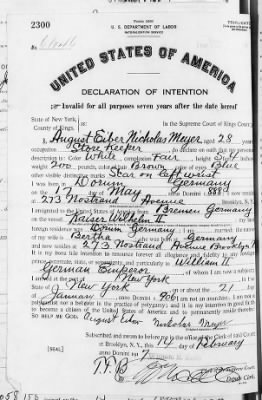 2300
U. S. DEPARTMENT OF LABOR
NATURALIZATION SERVICE
UNITED STATES OF AMERICA
DECLARATION OF INTENTION
Invalid for all purposes seven years after the date hereof
State of New York, In the Supreme Court of Kings County
County of Kings,
I, August Eiber Nicholas Meyer, aged 28 years,
occupation Store Keeper, do declare on oath that my personal
description is: Color White, complexion Fair, height 5
200 pounds, color of hair Brown, color of eyes Blue
other visible distinctive marks Scar on left wrist
I was born in Dorum Germany
on the 17 day of May, anno Domini 1 888; I now reside
at 273 Nostrand Avenue
I emigrated to the United States of America from Bremen Germany
on the vessel Kaiser Wilhelm II
foreign residence was Dorum Germany
wife's name is Bertha Germany
and now resides at 273 Nostrand Avenue Brooklyn N
It is my bona fide intention to renounce forever all allegiance and fidelity to any foreign
prince, potentate, state, or sovereignty, and particularly to William II
German Emperor, of whom I am now a subject
New York
of New York, on or about the 21 day
of January, anno Domini 1 906; I am not an anarchist; I am not a
polygamist nor a believer in the practice of polygamy; and it is my intention in good faith
to become a citizen of the United States of America and to permanently reside therein:
SO HELP ME GOD. August Eiber Nicholas Meyer
Subscribed and sworn to before me in the office of the Clerk of said Court
at Brooklyn, N. Y., this 14 day of February
anno Domini 191 7
[SEAL]